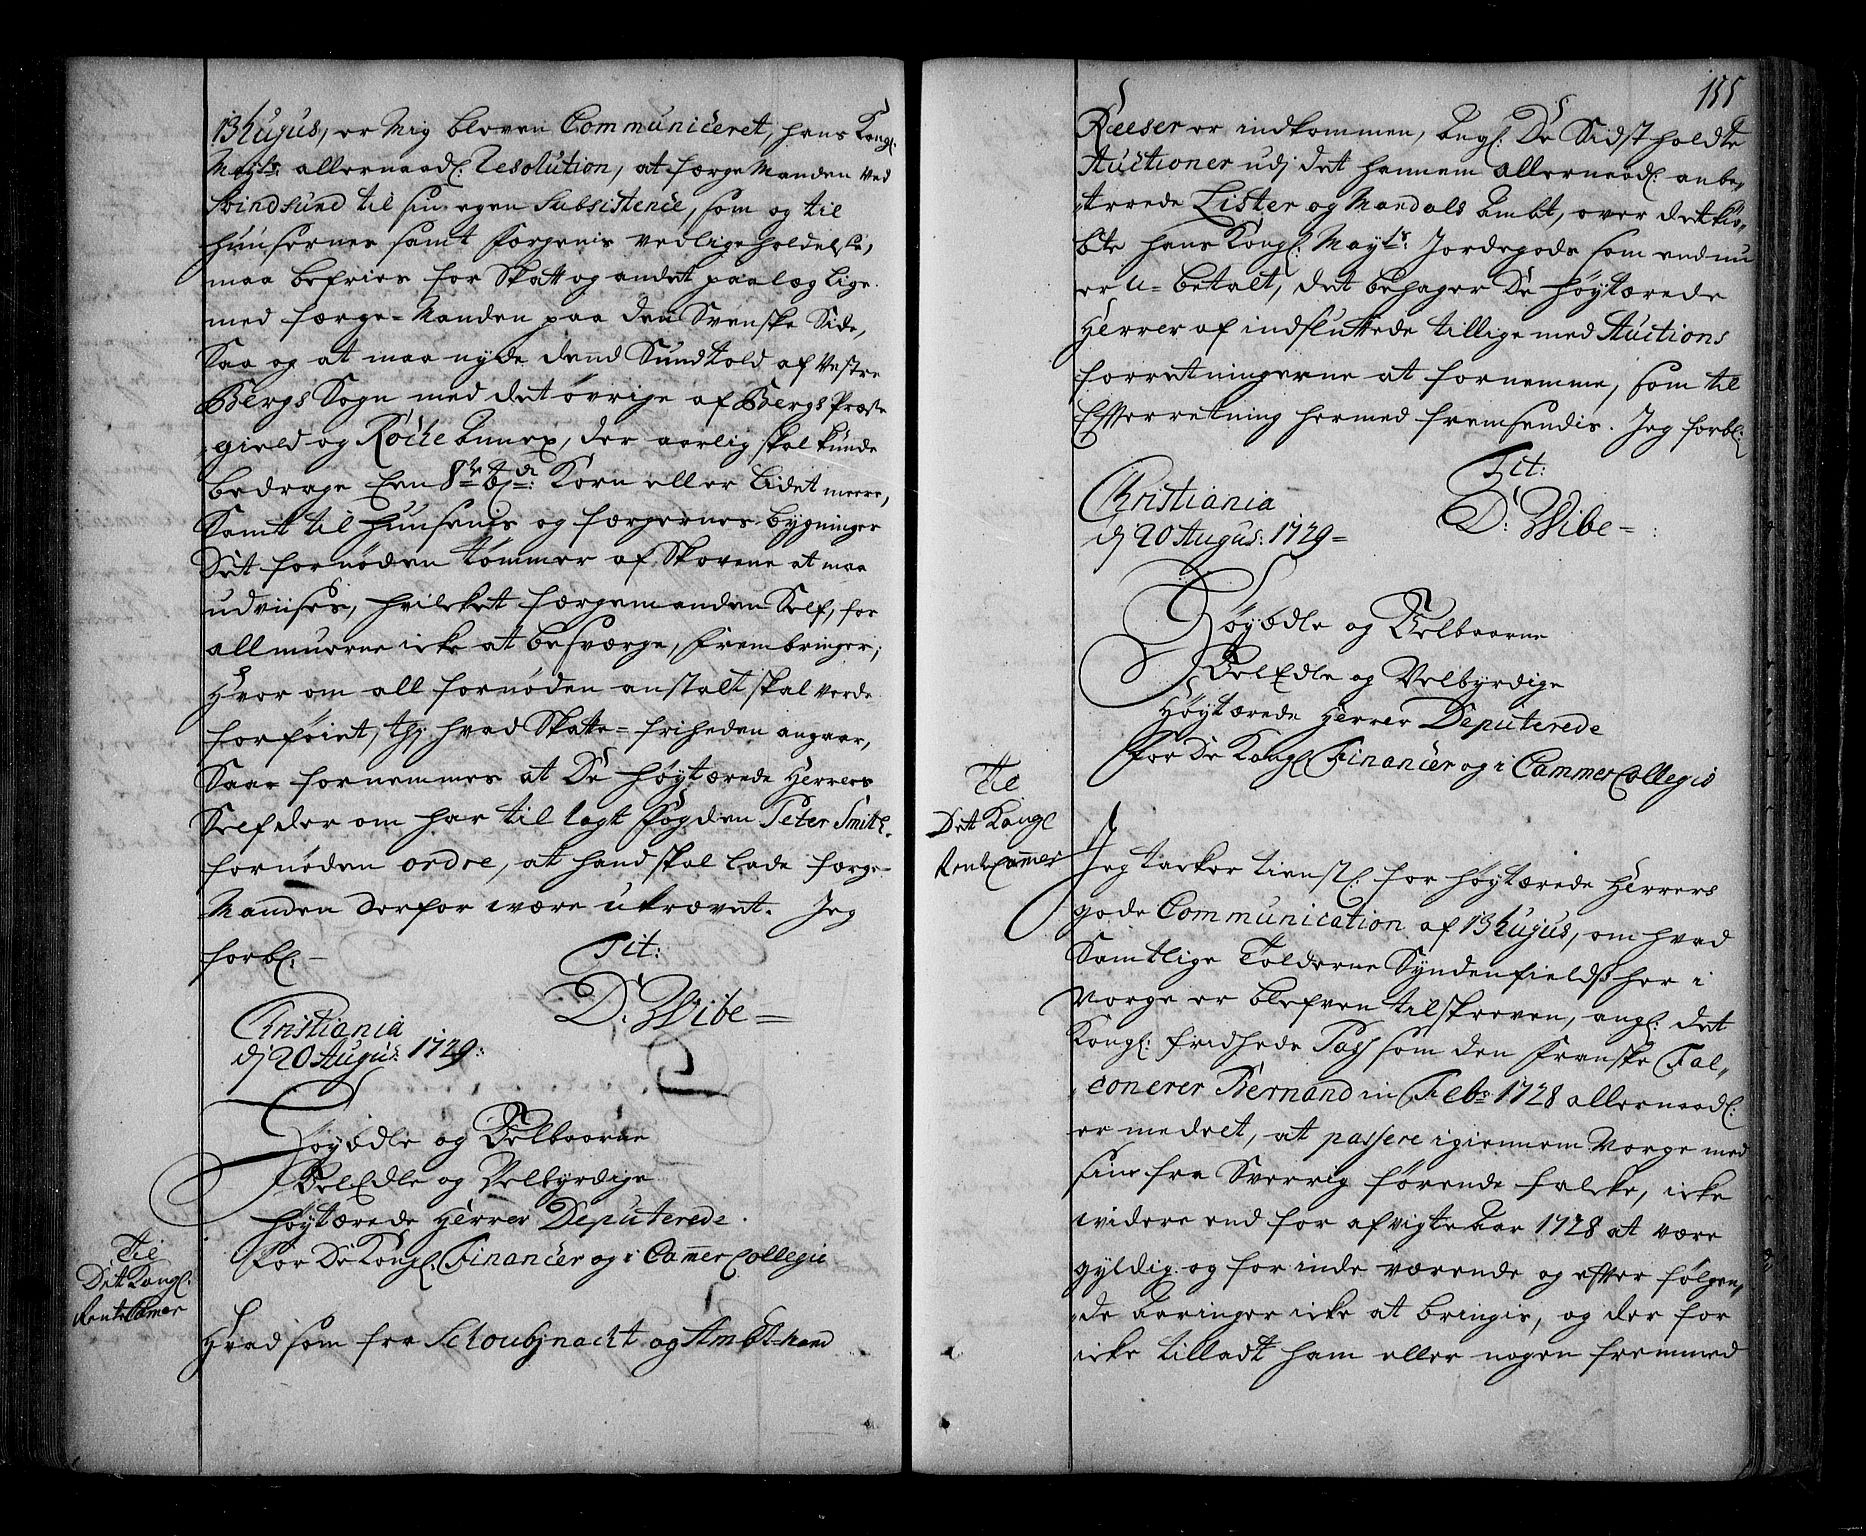 13 hujus, er Mig bleven Communiceret, hans Kongl:
Mayts: allernaad: Resolution, at færge Manden ved
Svindsund til sin egen Subsistence, som og til
huusernes samt fergenis vedligeholdelse,
maa befries for Skatt og andet paalæg lige-
med færge-Manden paa den Svenske Side,
Saa og at maa nyde dend Sundtold af Vestre
Bergs Sogn med det øvrige af Bergs Præste
gield og Röche Annex, der aarlig skal kunde
bedrage Een 8te Korn eller lidet meere,
Samt til huusenis og færgernes bygninger
Dit fornøden tømmer af Skovene at maa
udviises, hvilcket færgemanden Self, for
allmuerne icke at besværge, frembringer;
Hvor om all fornøden anstalt skal vorde
forføint, thj hvad Skatte-friheden angaar,
Saa fornemmes at De høytærede Herrers
Self der om har tillagt fogden Peter Smith
fornøden ordre, at hand skal lade færge-
Manden derfor være ukrævet. Jeg
forbl: -
Tit:
D: Wibe =
Christiania
dj 20 Augus: 1729:
Høyædle og Velbaarne
VelEdle og Velbyrdige
høytærede Herrer Deputerede.
for De Kongl: Financer og i Cammer Collegie
Til
Det Kongl:
Rente Camer
Hvad som fra Schoubjnacht og Ambtmand
155
Reeser er indkommen, angl: De Sidst holdte
Auctioner udj det hannem allernaad: anbe-
troede Lister og Mandals Ambt, over det kiø-
bte hans Kongl: Mayts: Jordegods som endnu
er u-betalt, det behager De høytærede
Herrer af indsluttede tillige med Auctions
forretningerne at fornemme, som til
Efterretning hermed fremsendis. Jeg forbl:
Tit:
D: Wibe =
Christiania
dj 20 Augus: 1729 =
Høyædle og Velbaarne
VelEdle og Velbyrdige
Høytærede Herrer Deputerede
for De Kongl Financer og i Cammer Collegio
Til
Det Kongl
Rente Cammer
Jeg tacker tienstl: for høytærede Herrers
gode Communication af 13 hujus, om hvad
Samtlige Tolderne Syndenfields her i
Norge er blefven tilskreven, angl: det
Kongl: fridhede Pass som den franske Fal-
conerer Bernand in Febr 1728 allernaad:
er medeet, at passere igiennem Norge med
sine fra Sverrig førende falcke, icke
widere end for afvigte Aar 1728 at være
gyldig og for inde værende og efter følgen-
de Aaringer icke at bringis, og der for
icke tilladt ham eller nogen fremmed